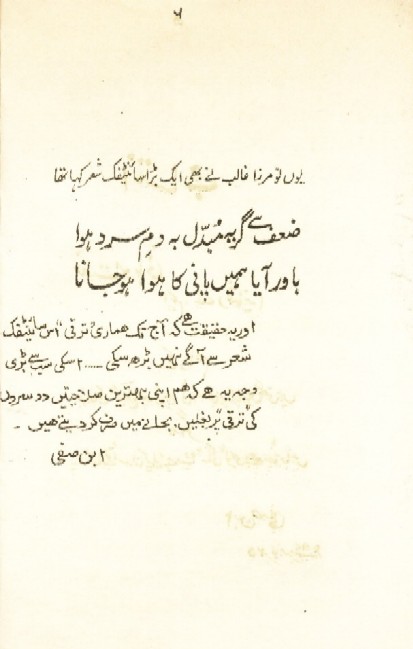 ۶
یوں تو مرزا غالب نے بھی ایک بڑا سائنٹیفک شعر کہا تھا
ضعف سے گریہ مُبدّل بہ دمِ سرد ہوا
باور آیا ہمیں پانی کا ہوا ہو جانا
اور یہ حقیقت ہے کہ آج تک ہماری "ترقی" اس سائنٹیفک
شعر سے آگے نہیں بڑھ سکی ..... اسکی سب سے بڑی
وجہ یہ ہے کہ ہم اپنی بہترین صلاحیتیں دوسروں
کی "ترقی" پر بغلیں بجانے میں صرف کر دیتے ہیں۔
ابن صفی